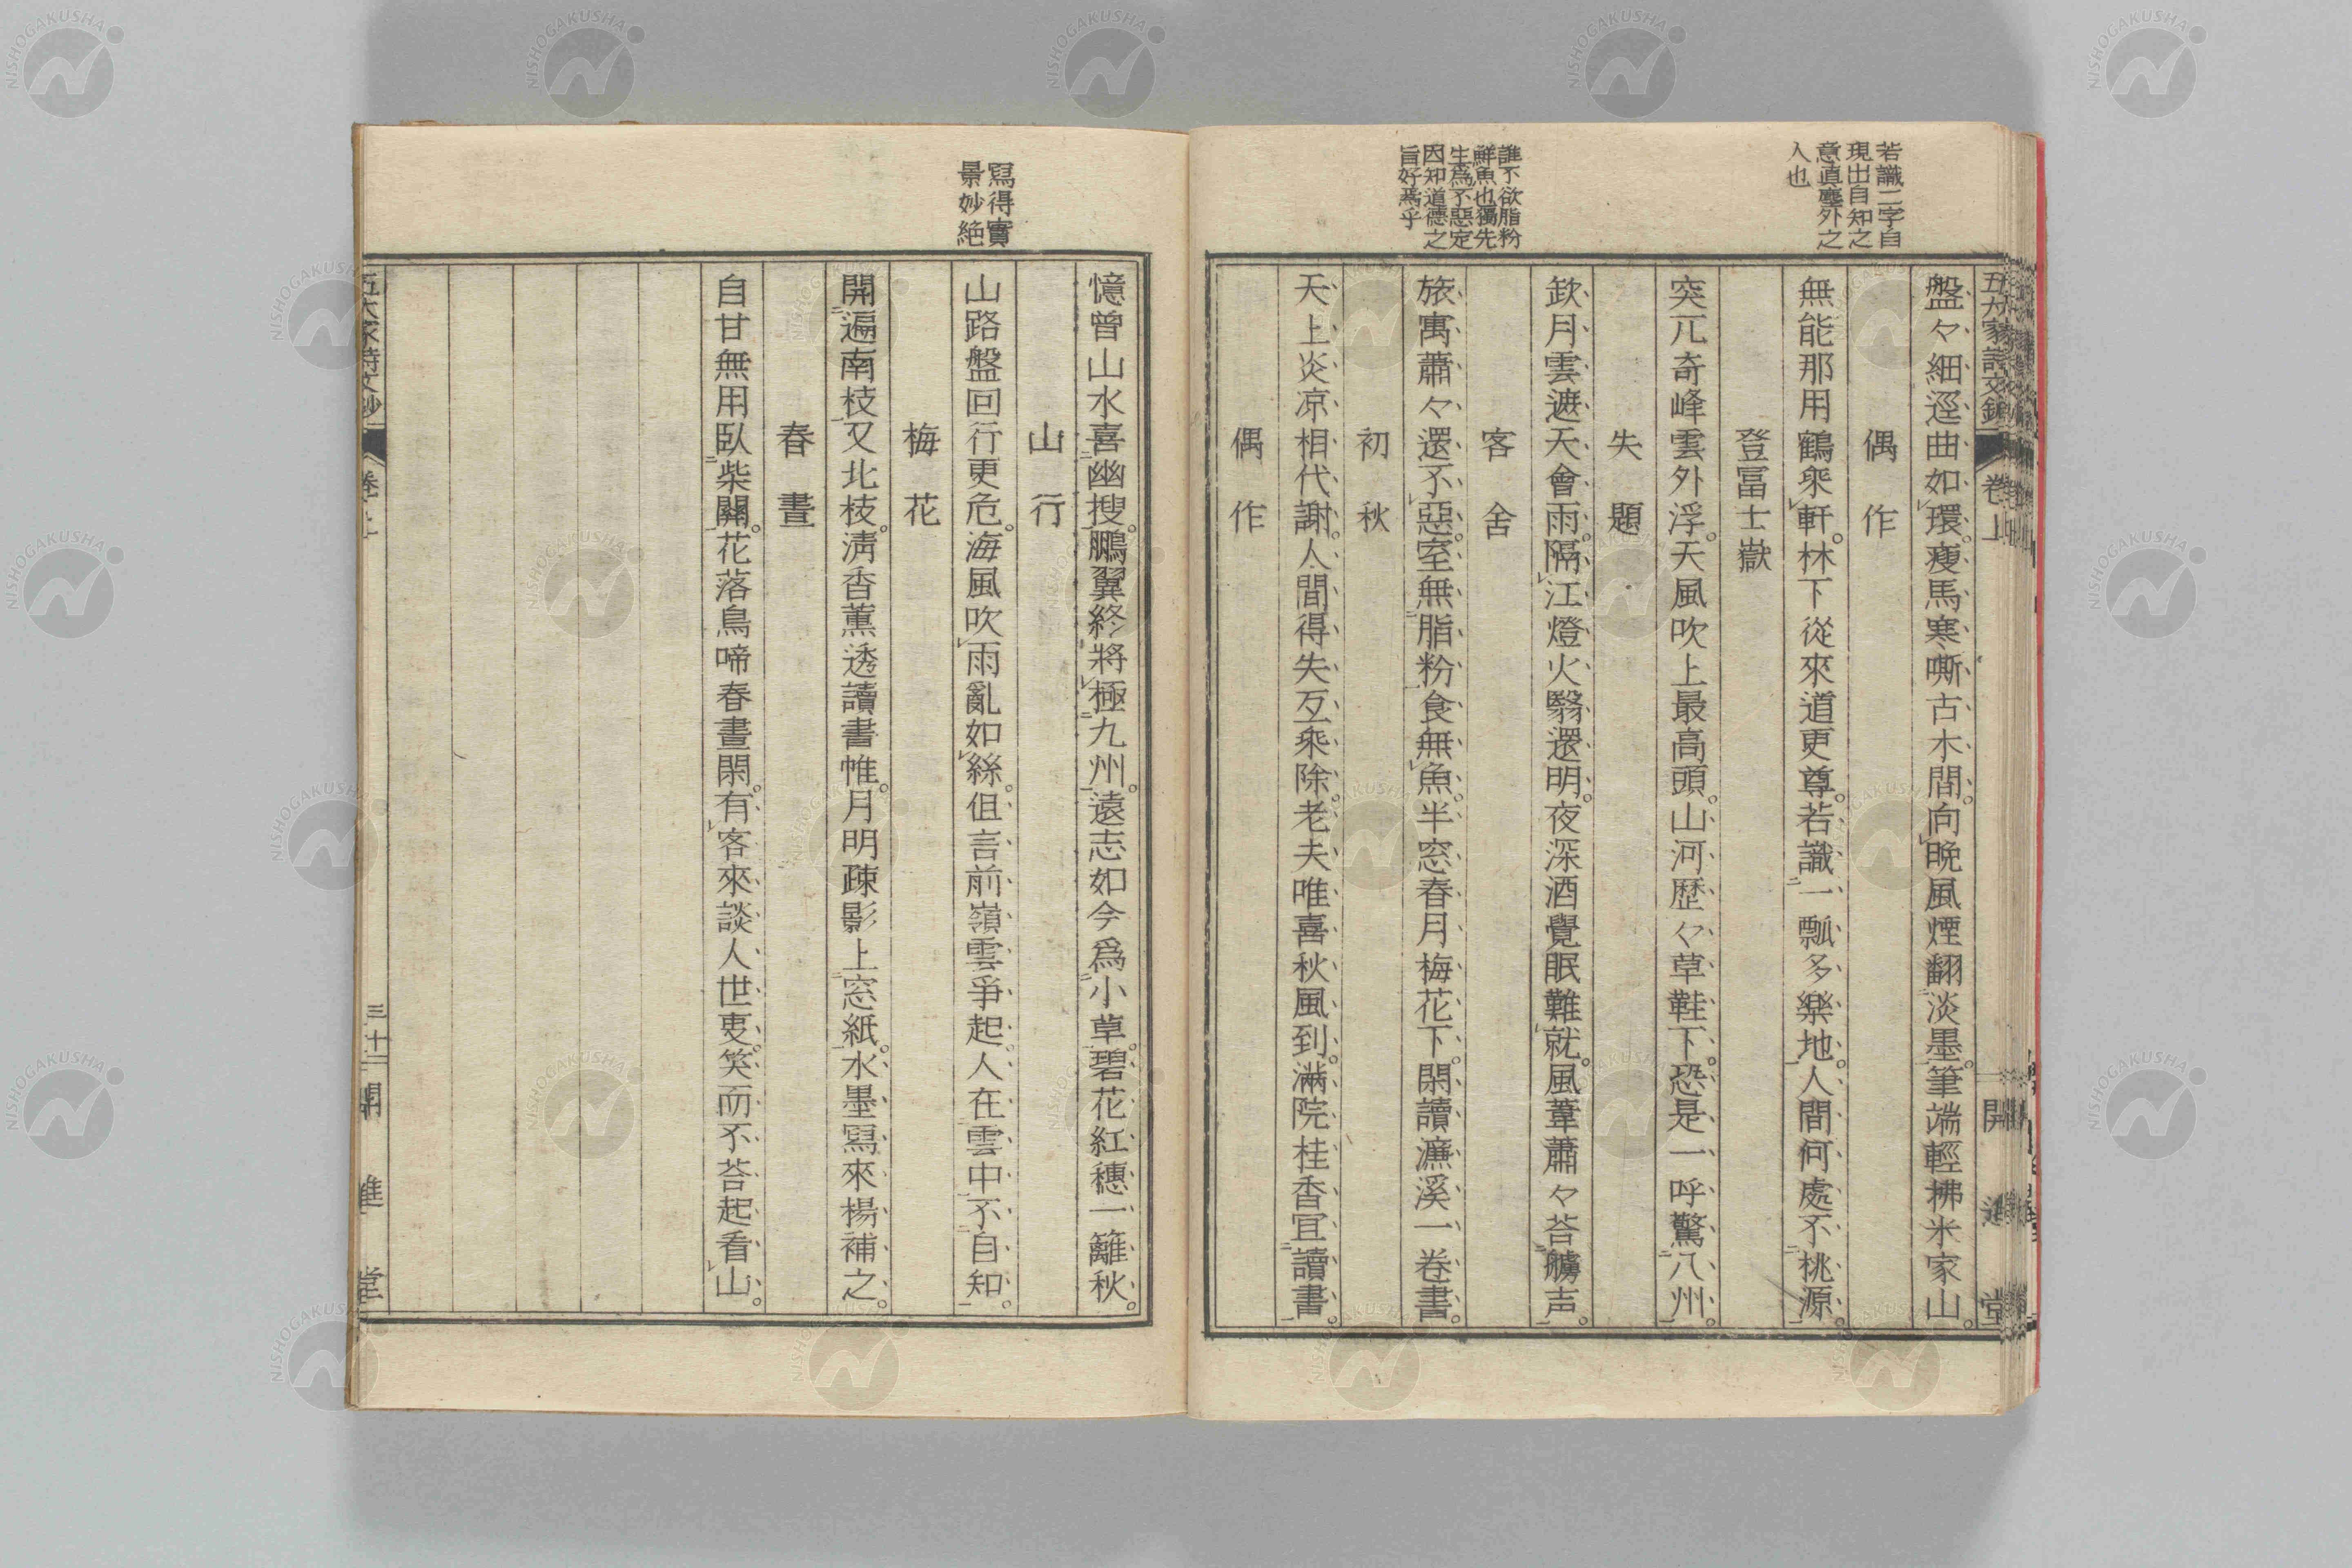 若識二字自
現出自知之
意真塵外之
人也
誰不欲脂粉
鮮魚也獨先
生為不惡定
因知道德之
旨好焉乎
五大家詩文鈔 卷上 開 進 堂
盤々細逕曲如環。瘦馬寒嘶古木間。向晚風煙翻淡墨。筆端輕拂米家山。
偶 作
無能那用鶴乘軒。林下從來道更尊。若識一瓢多樂地。人間何處不桃源。
登冨士嶽
突兀奇峰雲外浮。天風吹上最高頭。山河歷々草鞋下。恐是一呼驚八州。
失 題
欽月雲遮天會雨。隔江燈火翳還明。夜深酒覺眠難就。風葦蕭々荅艣声。
客 舍
旅寓蕭々還不惡。室無脂粉食無魚。半窓春月梅花下。閑讀濂溪一卷書。
初 秋
天上炎凉相代謝。人間得失互乘除。老夫唯喜秋風到。滿院桂香冝讀書。
偶 作
寫得實
景妙絶
憶曾山水喜幽搜。鵬翼終將極九州。遠志如今爲小草。碧花紅穗一籬秋。
山 行
山路盤回行更危。海風吹雨亂如絲。但言前嶺雲爭起。人在雲中不自知。
梅 花
開遍南枝又北枝。淸香薰透讀書帷。月明疎影上窓紙。水墨寫來楊補之。
春 晝
自甘無用臥柴關。花落鳥啼春晝閑。有客來談人世叓。笑而不荅起看山。
五大家詩文鈔 卷上 三十二 開 進 堂
NISHOGAKUSHA